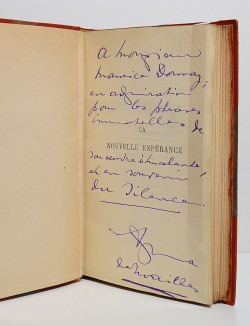 A Monsieur
Maurice Donnay,
en admiration
pour les phrases
immortelles de
LA
NOUVELLE ESPÉRANCE
et en souvenir
du Silence
Anna
de Noailles